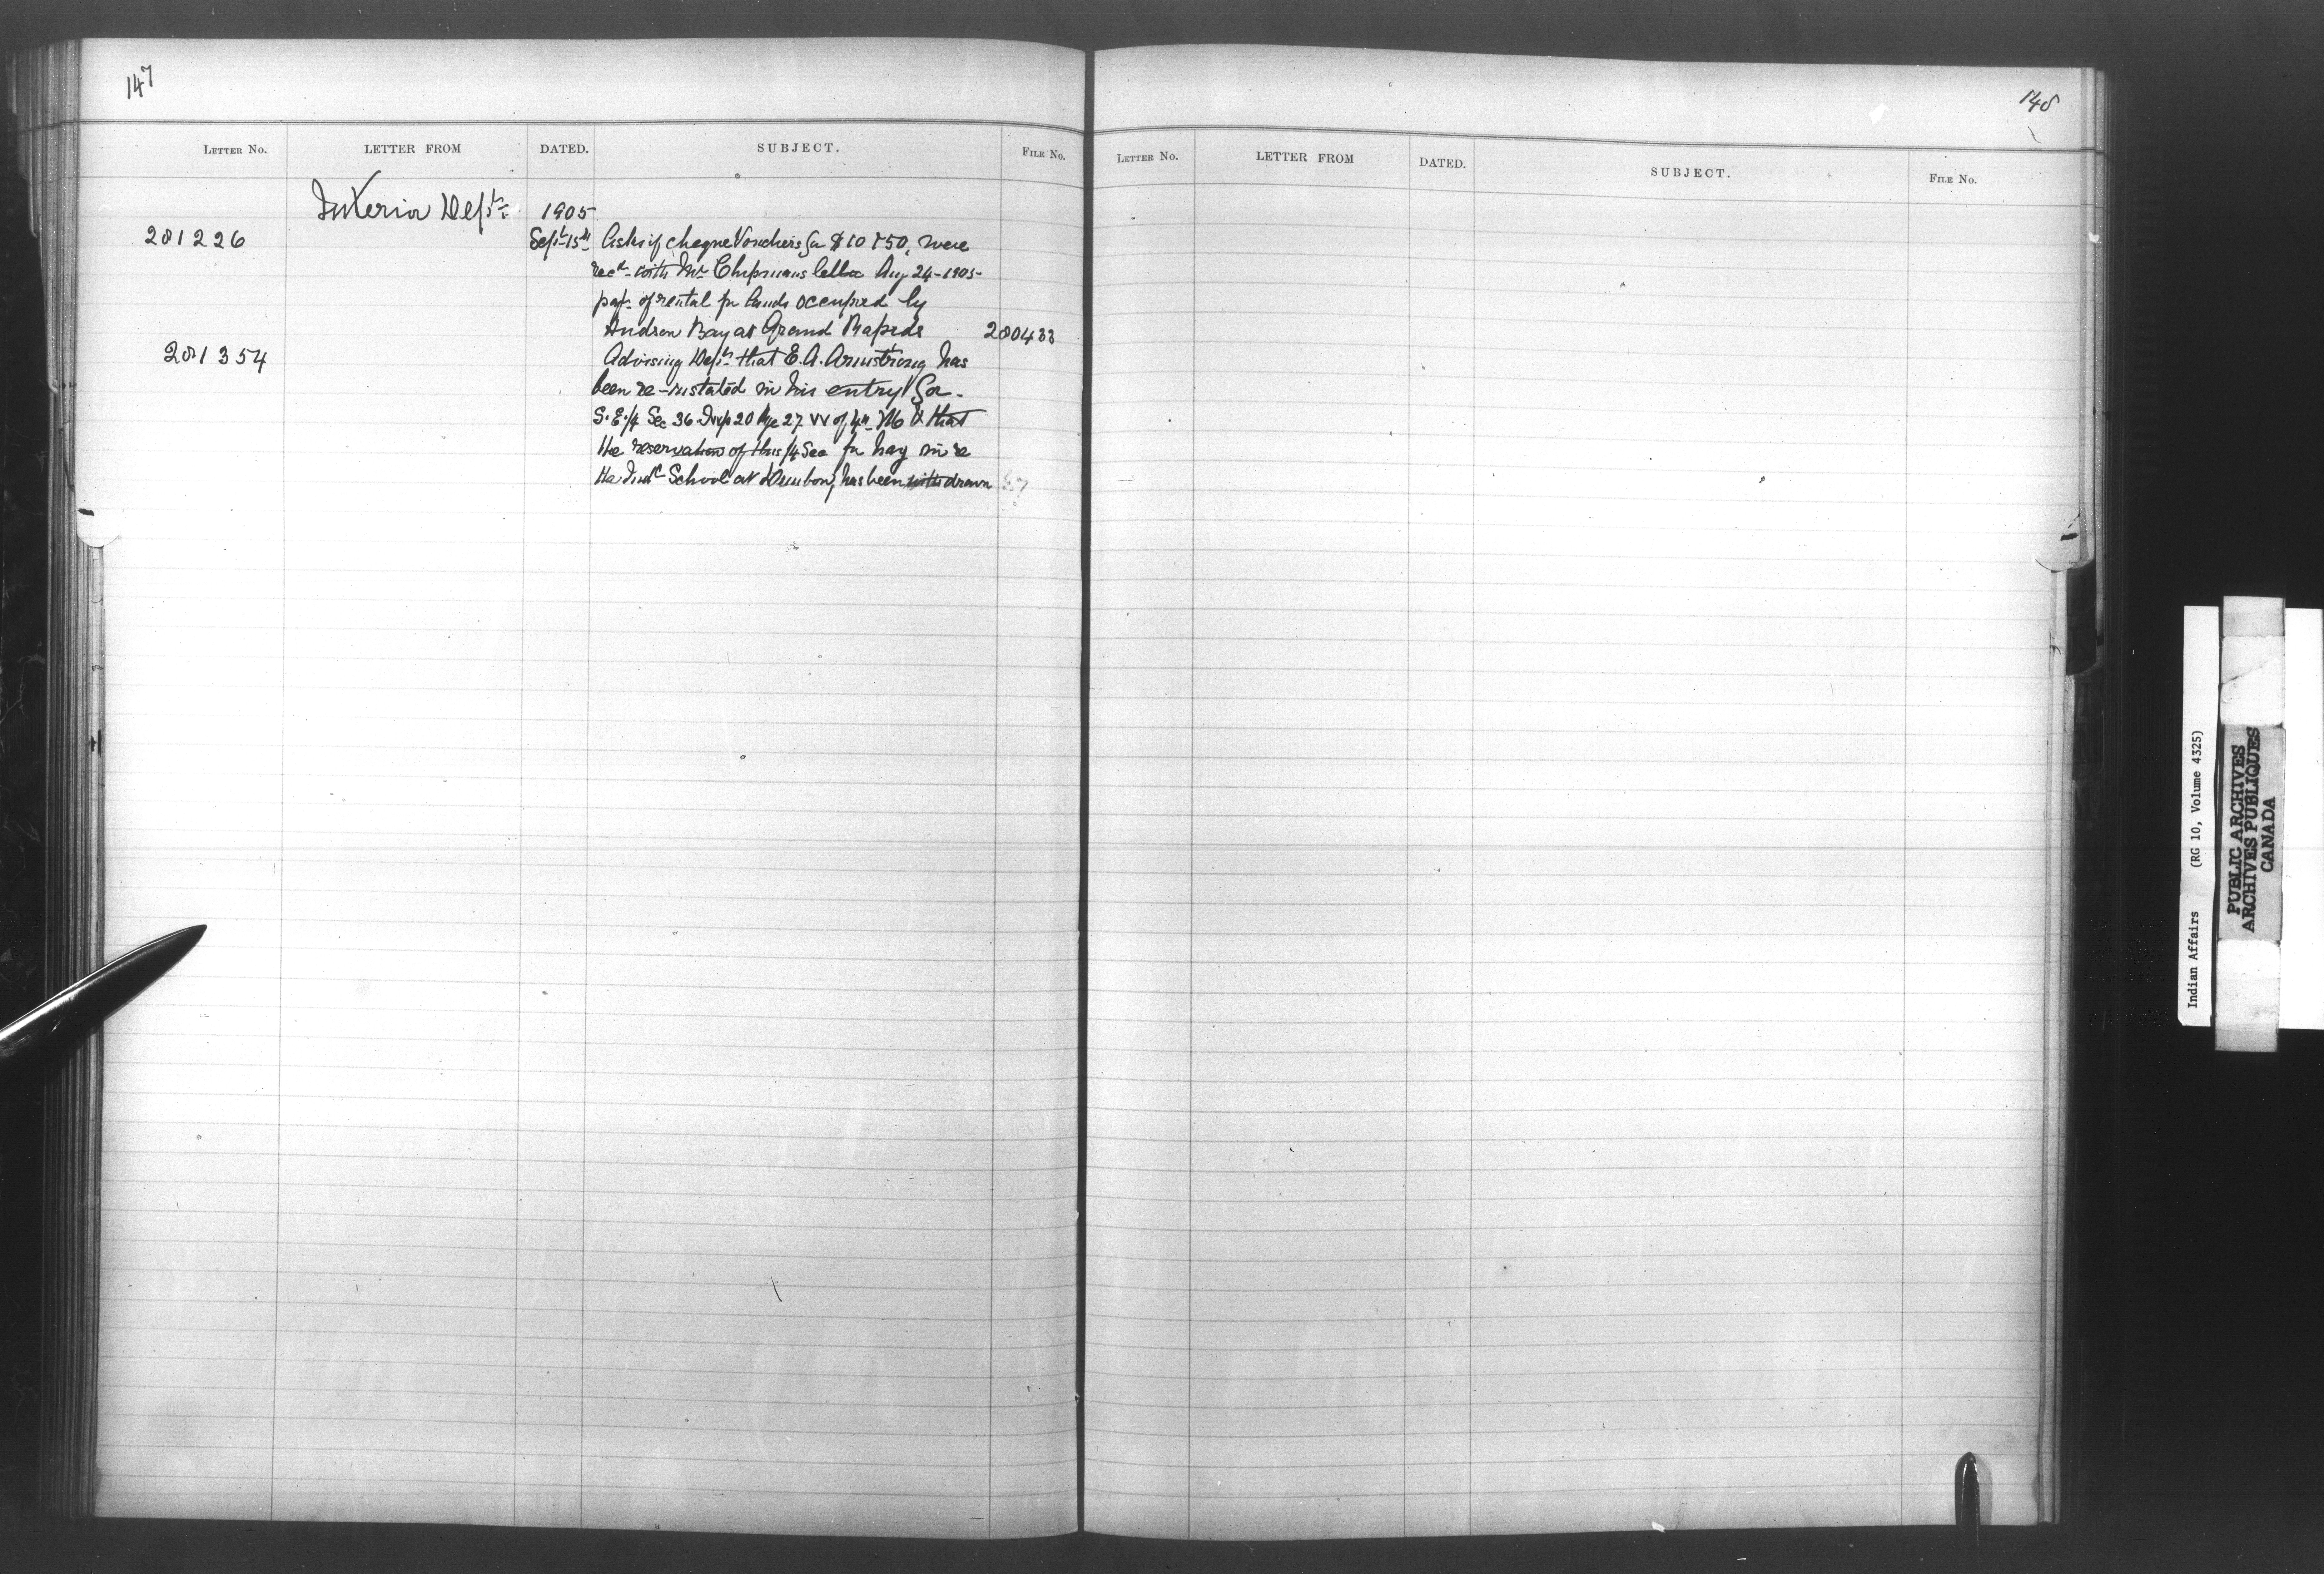 147
LETTER NO. LETTER FROM DATED. SUBJECT. FILE NO.
Interior Dept. 1905
281226 Sept 15th Asks if cheque Vouchers for $10 & 50, were
recd. with Mr Chipmans letter Aug 24-1905-
payt. of rental for lands occupied by
Hudson Bay at Grand Rapids 280433
281354 Advising Dept. that E. A. Armstrong has
been re-instated in his entry for
S. E. 1/4 Sec 36 Twp 20 Rge 27 W of 4th M & that
the reservation of this 1/4 Sec for hay in re
the Indl School at Dunbow, has been withdrawn
148
LETTER NO. LETTER FROM DATED. SUBJECT. FILE NO.
Indian Affairs (RG 10, Volume 4325)
PUBLIC ARCHIVES
ARCHIVES PUBLIQUES
CANADA